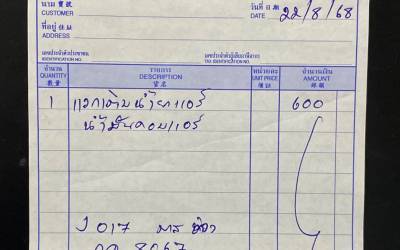 นาม 寶號
CUSTOMER
วันที่ 日期 22/8/68
DATE
ที่อยู่ 住址
ADDRESS
เลขประจำตัวประชาชน
IDENTIFICATION NO.
เลขประจำตัวผู้เสียภาษีอากร
TAX IDENTIFICATION NO.
จำนวน รายการ หน่วยละ จำนวนเงิน
QUANTITY DESCRIPTION UNIT PRICE AMOUNT
數量 貨名 價銀 銀額
1 แวคเติมน้ำยาแอร์ 600
น้ำมันคอมแอร์